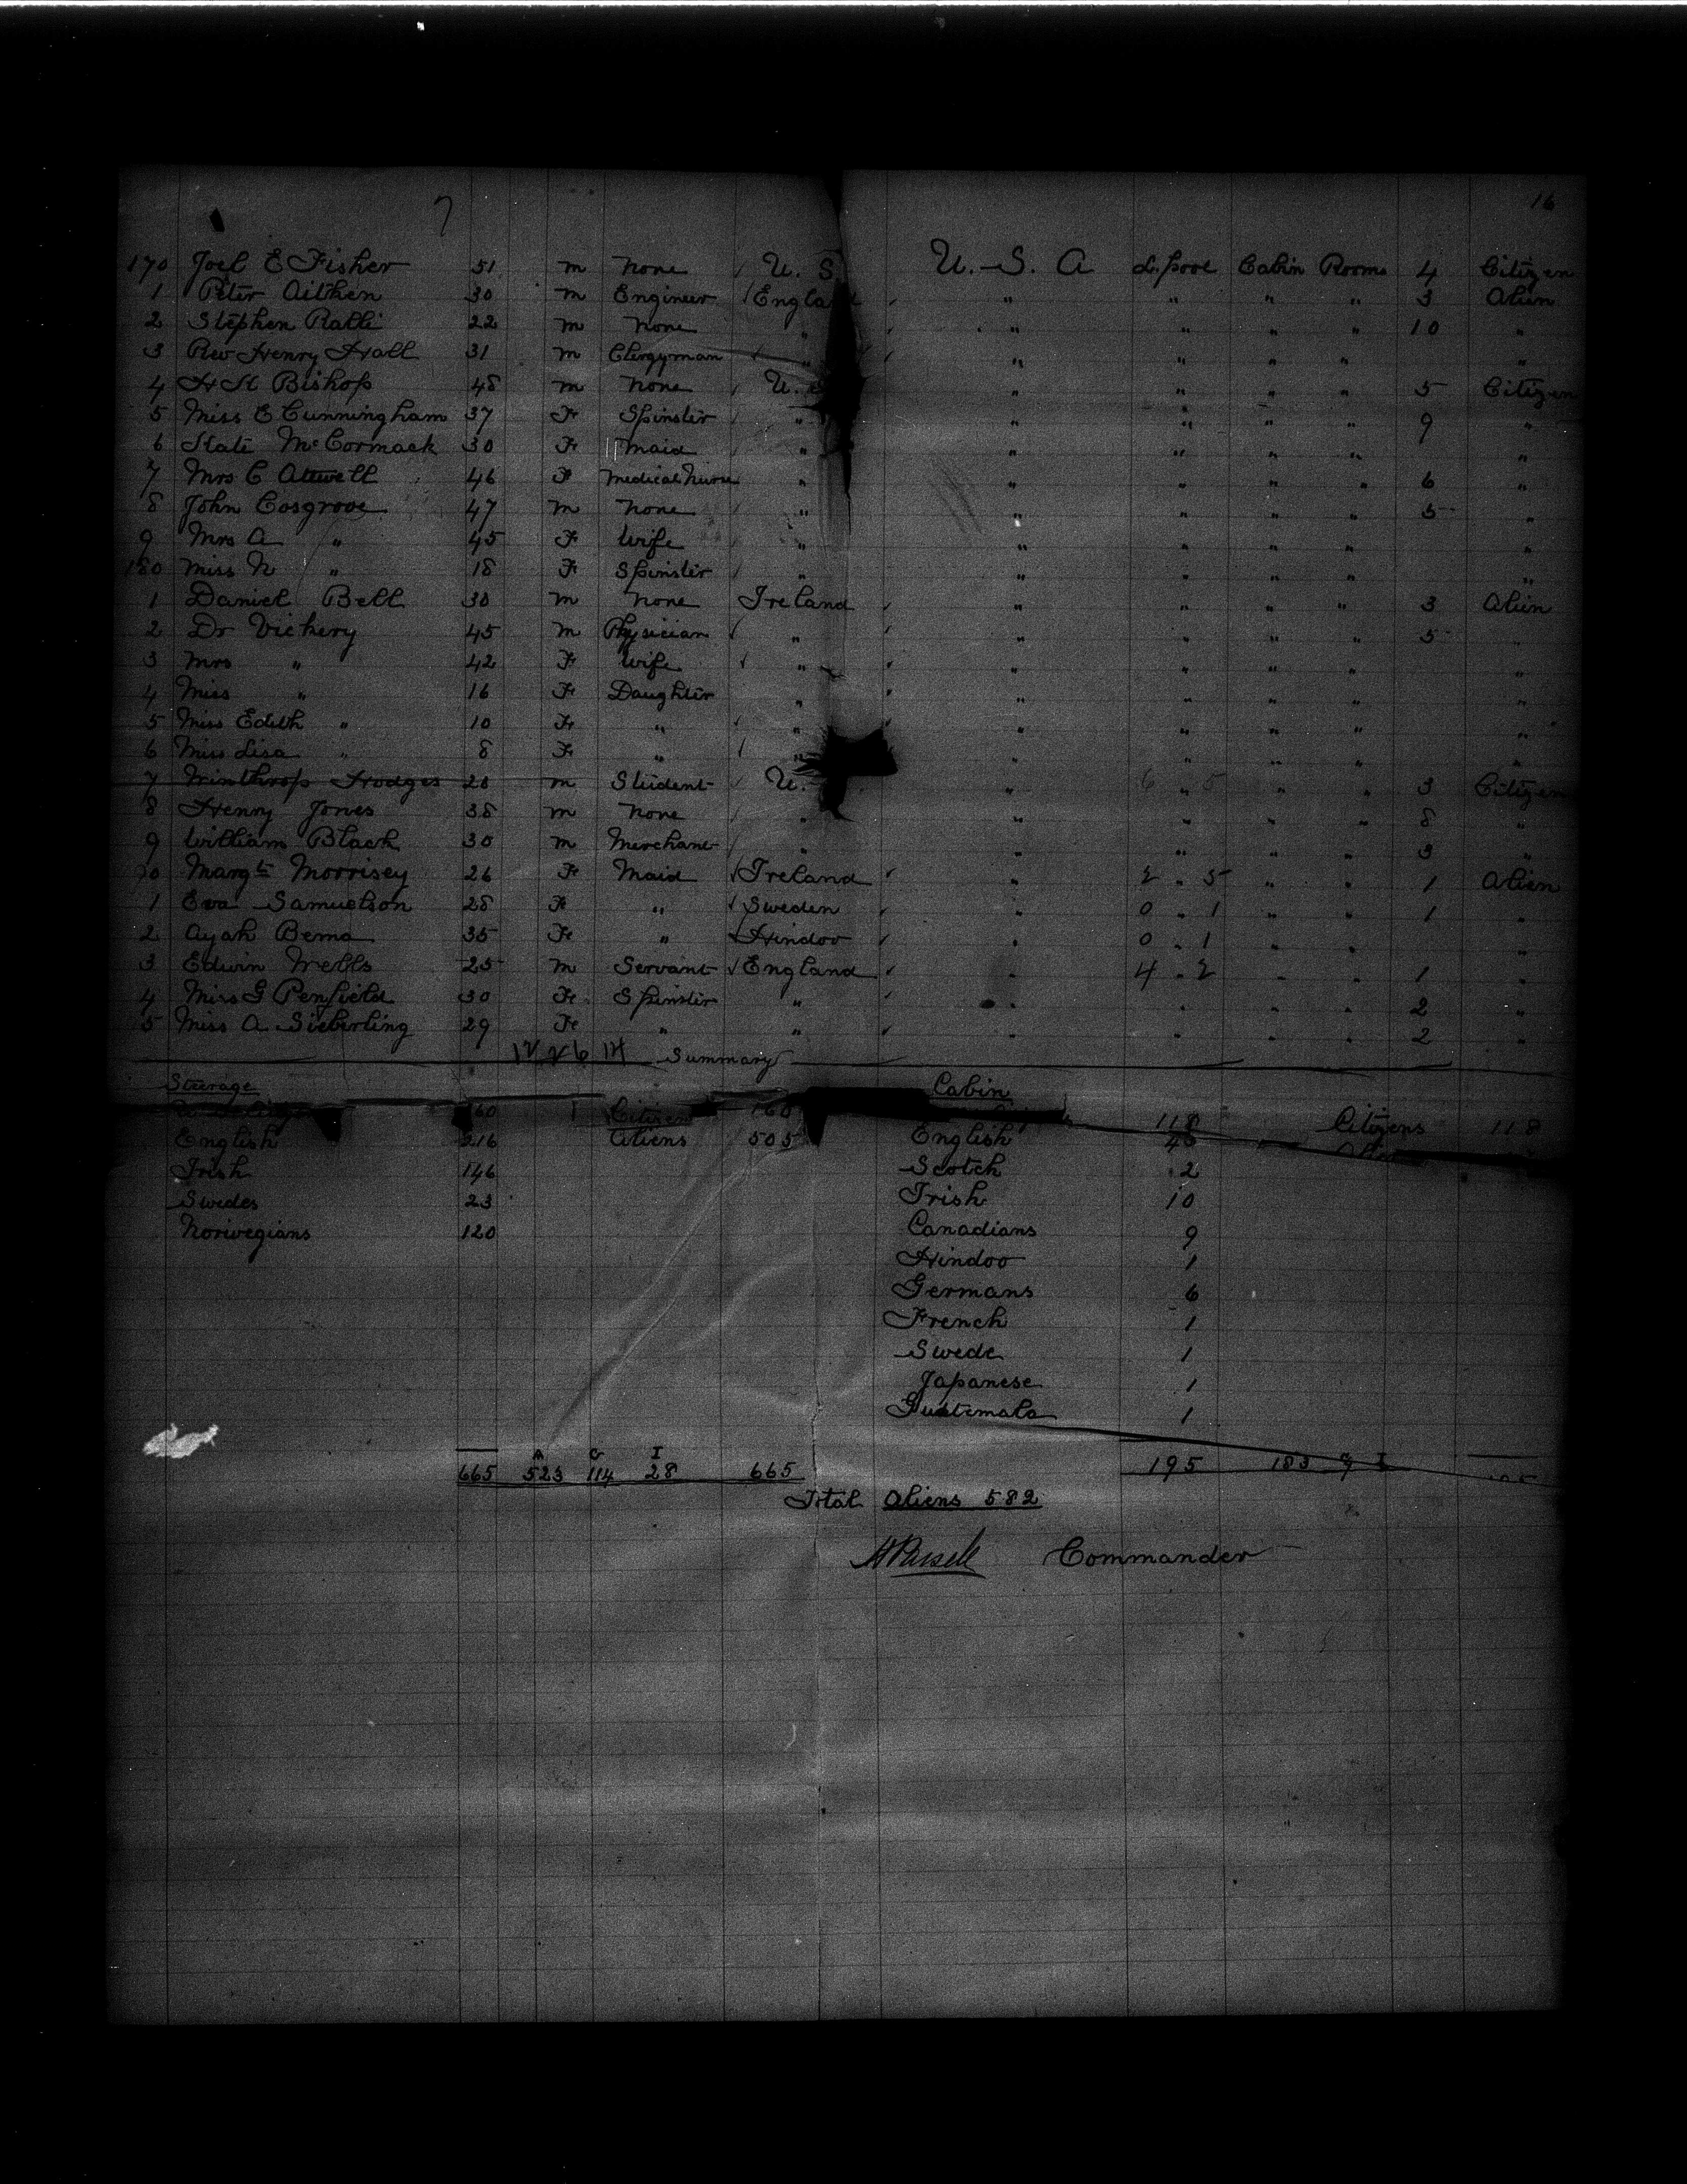 7
16
170 Joel E Fisher 51 m None U. S U. S. A L.pool Cabin Rooms 4 Citizen
1 Peter Aitken 30 m Engineer England " " " " 3 Alien
2 Stephen Ralli 22 m None " " " " " 10 "
3 Rev Henry Hall 31 m Clergyman " " " " " "
4 Bishop 48 m None U. " " " " 5 Citizen
5 Miss E Cunningham 37 F Spinster " " " " " 9 "
6 McCormack 30 F Maid " " " " " "
7 Mrs C Atwell 46 F Medical Nurse " " " " " 6 "
8 John Cosgrove 47 m None " " " " " 5 "
9 Mrs A " 45 F Wife " " " " " "
180 Miss N " 18 F Spinster " " " " " "
1 Daniel Bell 30 m None Ireland " " " " 3 Alien
2 Dr Vickery 45 m Physician " " " " " 5 "
3 Mrs " 42 F Wife " " " " " "
4 Miss " 16 F Daughter " " " " " "
5 Miss Edith " 10 F " " " " " " "
6 Miss Lisa " 8 F " " " " " " "
7 Winthrop Hodges 28 m Student U. " 6 " 5 " " 3 Citizen
8 Henry Jones 38 m None " " " " " 8 "
9 William Black 30 m Merchant " " " " " 3 "
90 Margt Morrisey 26 F Maid Ireland " 2 " 5 " " 1 Alien
1 Eva Samuelson 28 F " Sweden " 0 " 1 " " 1 "
2 Ayah Bema 35 F " Hindoo " 0 " 1 " " "
3 Edwin Wells 25 m Servant England " 4 " 2 " " 1 "
4 Miss G Penfield 30 F Spinster " " " " " 2 "
5 Miss A Sieberling 29 F " " " " " " 2 "
Summary
Steerage Cabin
160 Citizens 160 118 Citizens 118
English 216 Aliens 505 English 45
Irish 146 Scotch 2
Swedes 23 Irish 10
Norwegians 120 Canadians 9
Hindoo 1
Germans 6
French 1
Swede 1
Japanese 1
Guatemala 1
A C I
665 523 114 28 665 195 183 9
Total Aliens 582
Commander